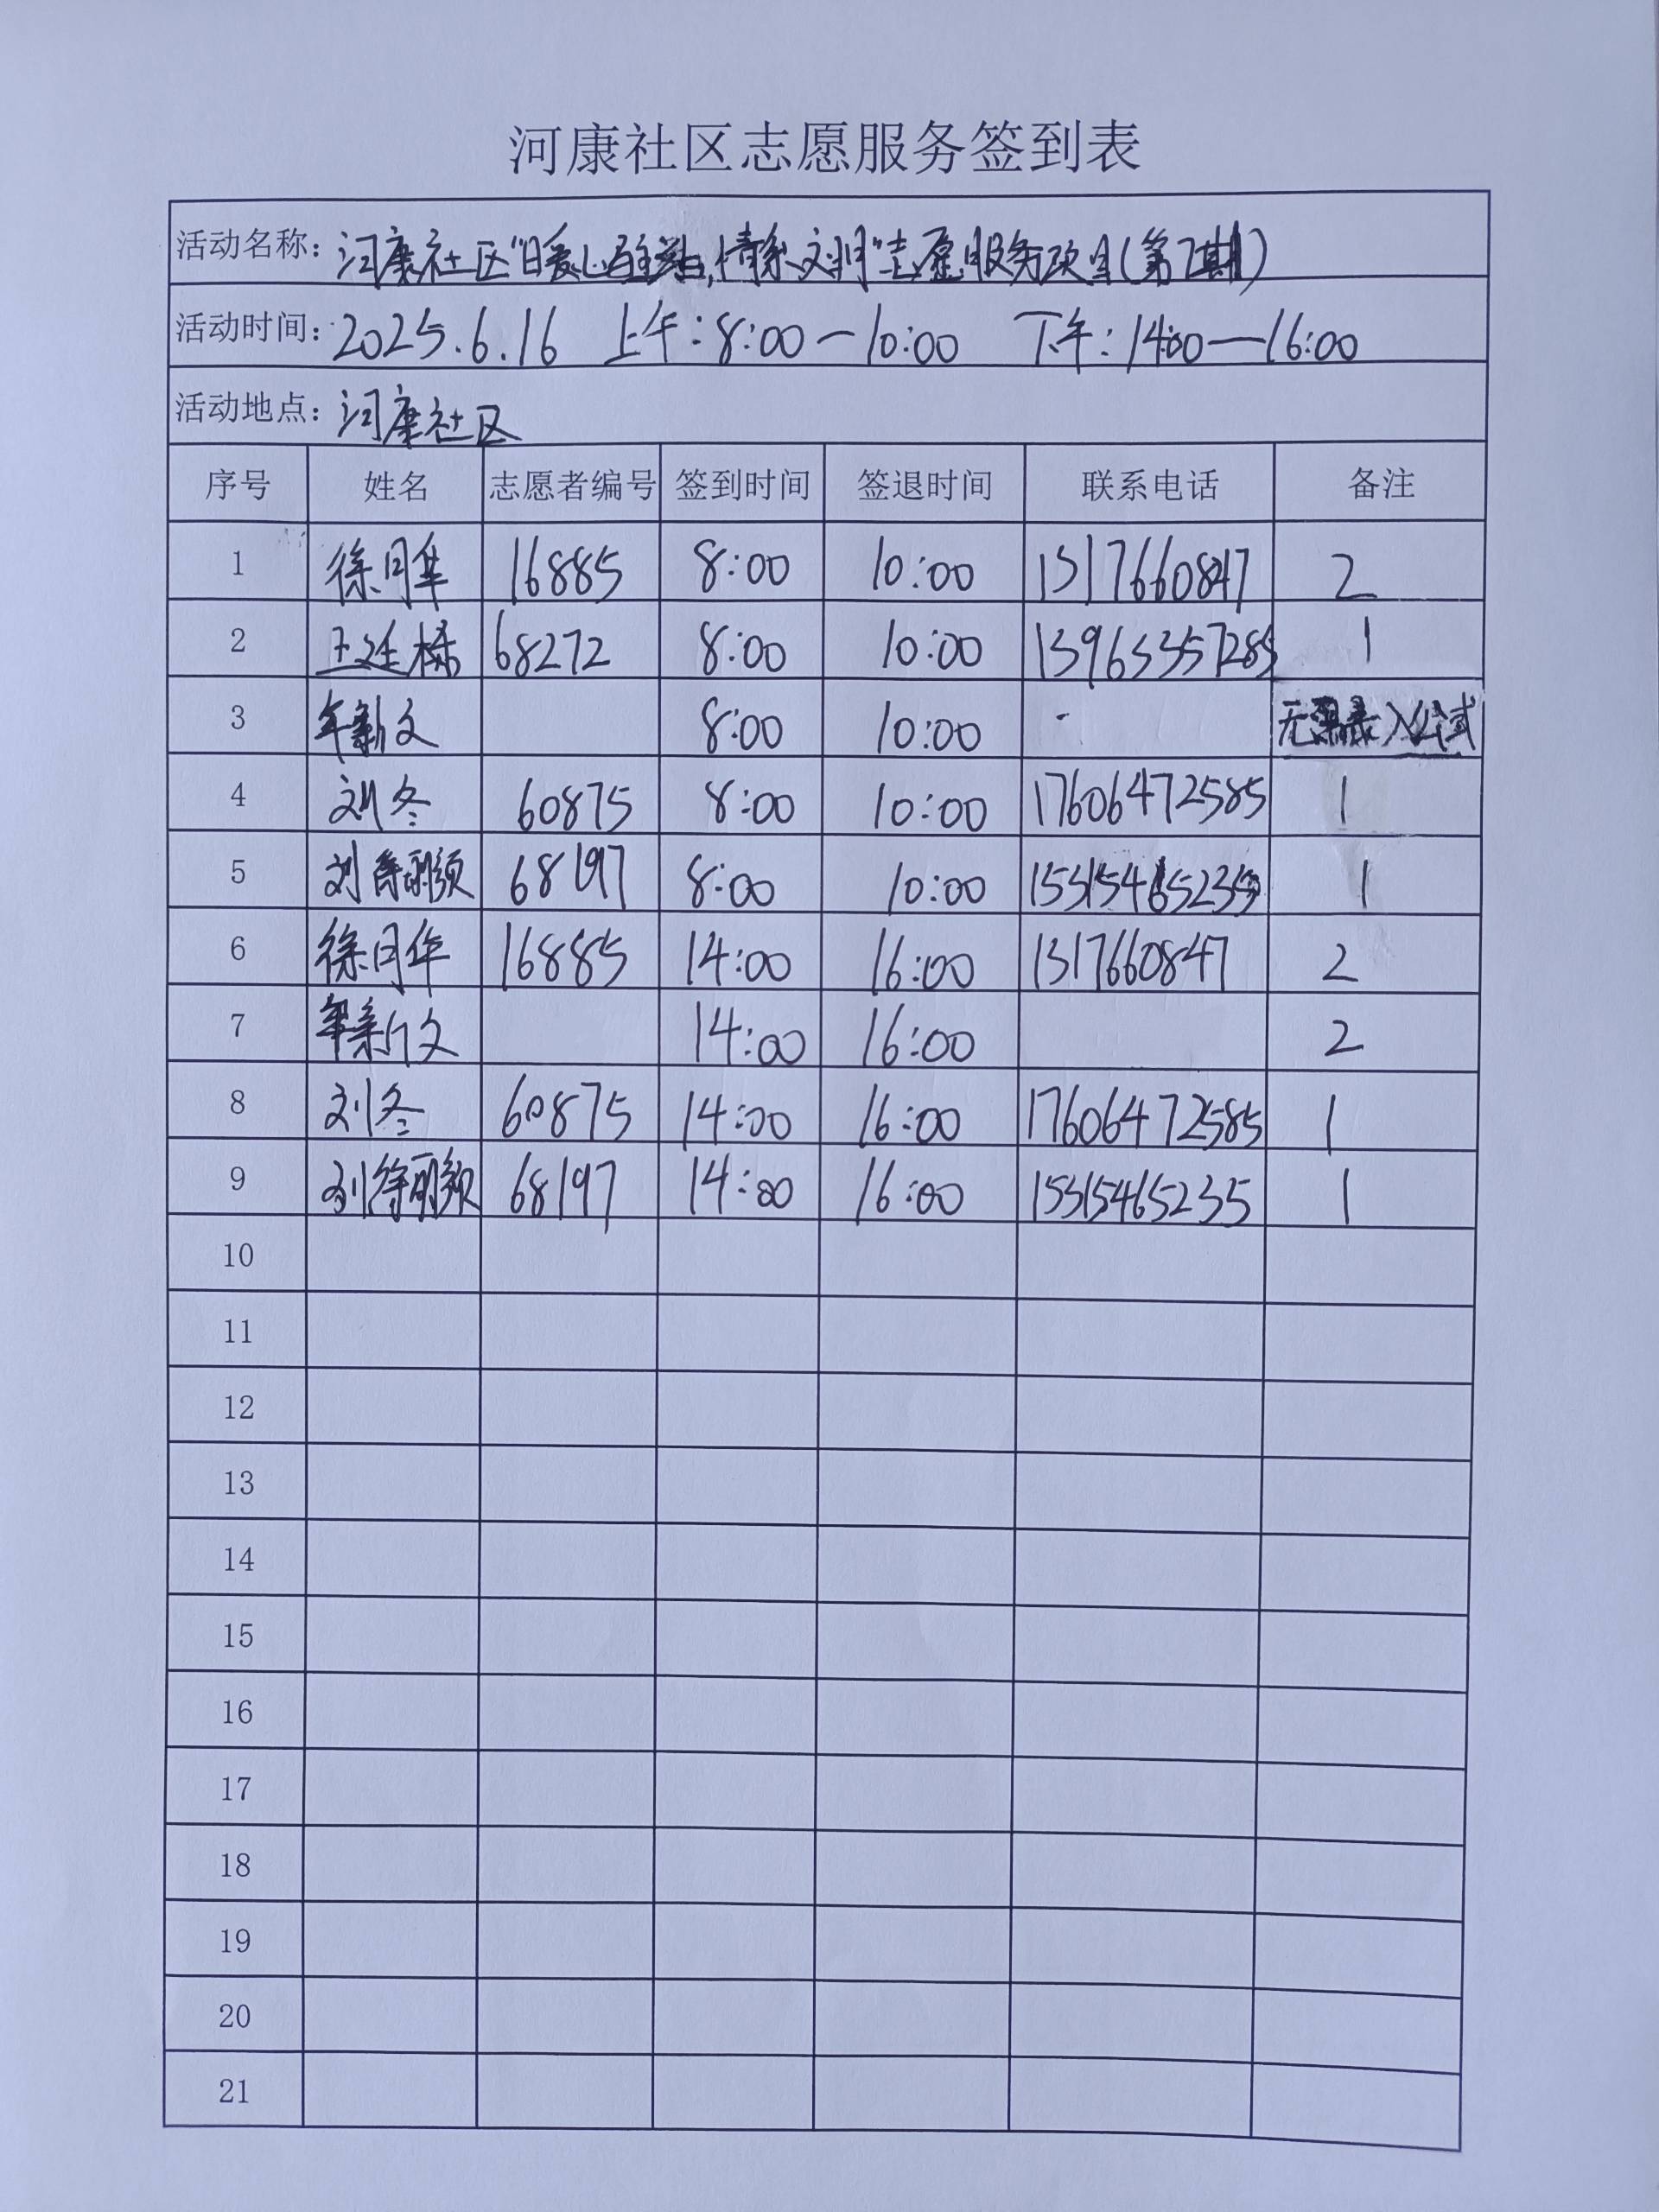 河康社区志愿服务签到表
活动名称：河康社区"暖心驿站,情系文明"志愿服务项目(第7期)
活动时间：2025.6.16 上午：8:00—10:00 下午：14:00—16:00
活动地点：河康社区
序号 姓名 志愿者编号 签到时间 签退时间 联系电话 备注
1 徐月华 16885 8:00 10:00 1317660847 2
2 王廷栋 68272 8:00 10:00 13963357285 1
3 年新文 8:00 10:00 无 录入公式
4 刘冬 60875 8:00 10:00 17606472585 1
5 刘 丽颍 68197 8:00 10:00 15315465235 1
6 徐月华 16885 14:00 16:00 1317660847 2
7 年新文 14:00 16:00 2
8 刘冬 60875 14:00 16:00 17606472585 1
9 刘 丽颍 68197 14:00 16:00 15315465235 1
10
11
12
13
14
15
16
17
18
19
20
21